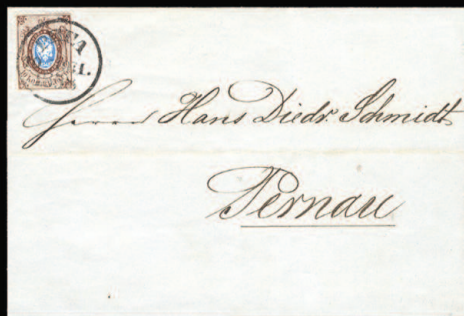 Herrn Hans Diedr. Schmidt
Pernau